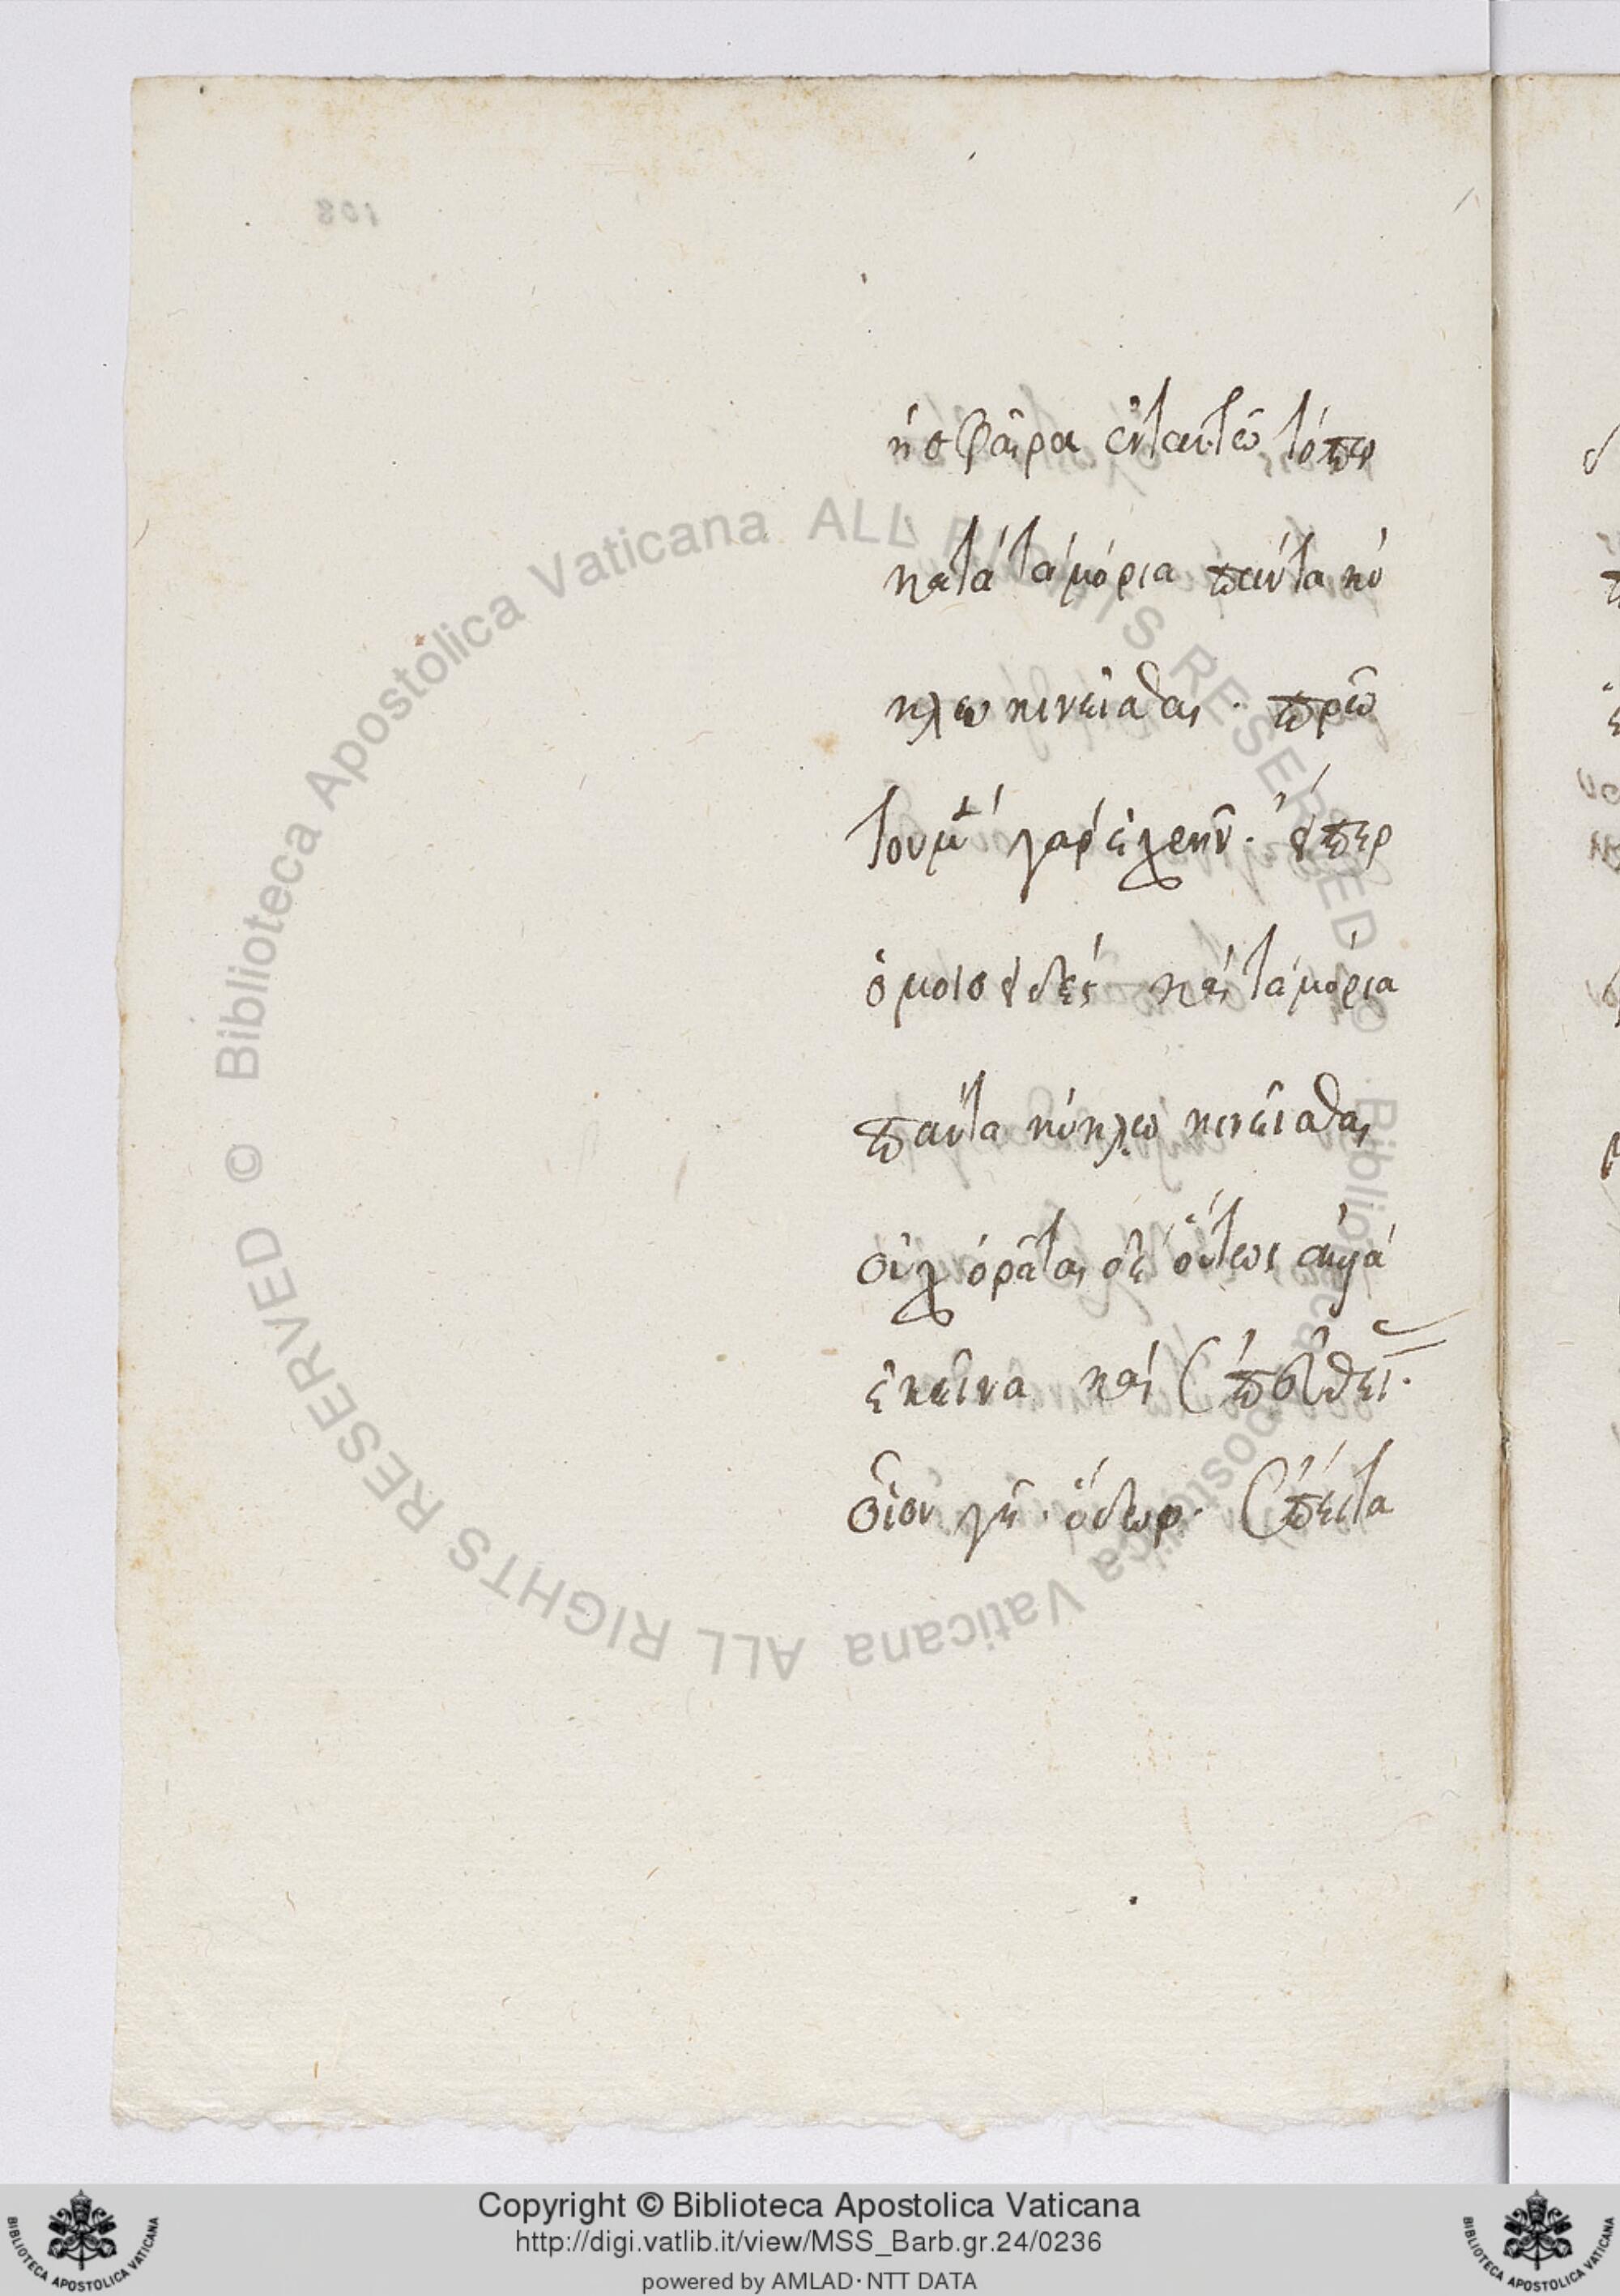 108
ἡ σφαῖρα ἐν ταυτῶ τόπω
κατὰ τὰ μόρια πάντα κύ
κλω κινεῖσθαι· πρῶ
τον μὲν γὰρ ἐλέχθην· ὅπερ
ὁμοιοειδές καὶ τὰ μόρια
πάντα κύκλω κινεῖσθαι
οὐχ ὁρᾶται δὲ οὕτως ἀλλὰ
ἐκεῖνα καὶ
οἷον γῆ· ὕδωρ· ἔπειτα
© Biblioteca Apostolica Vaticana ALL RIGHTS RESERVED © Biblioteca Apostolica Vaticana ALL RIGHTS RESERVED
Copyright © Biblioteca Apostolica Vaticana
http://digi.vatlib.it/view/MSS_Barb.gr.24/0236
powered by AMLAD·NTT DATA
BIBLIOTECA APOSTOLICA VATICANA
BIBLIOTECA APOSTOLICA VATICANA